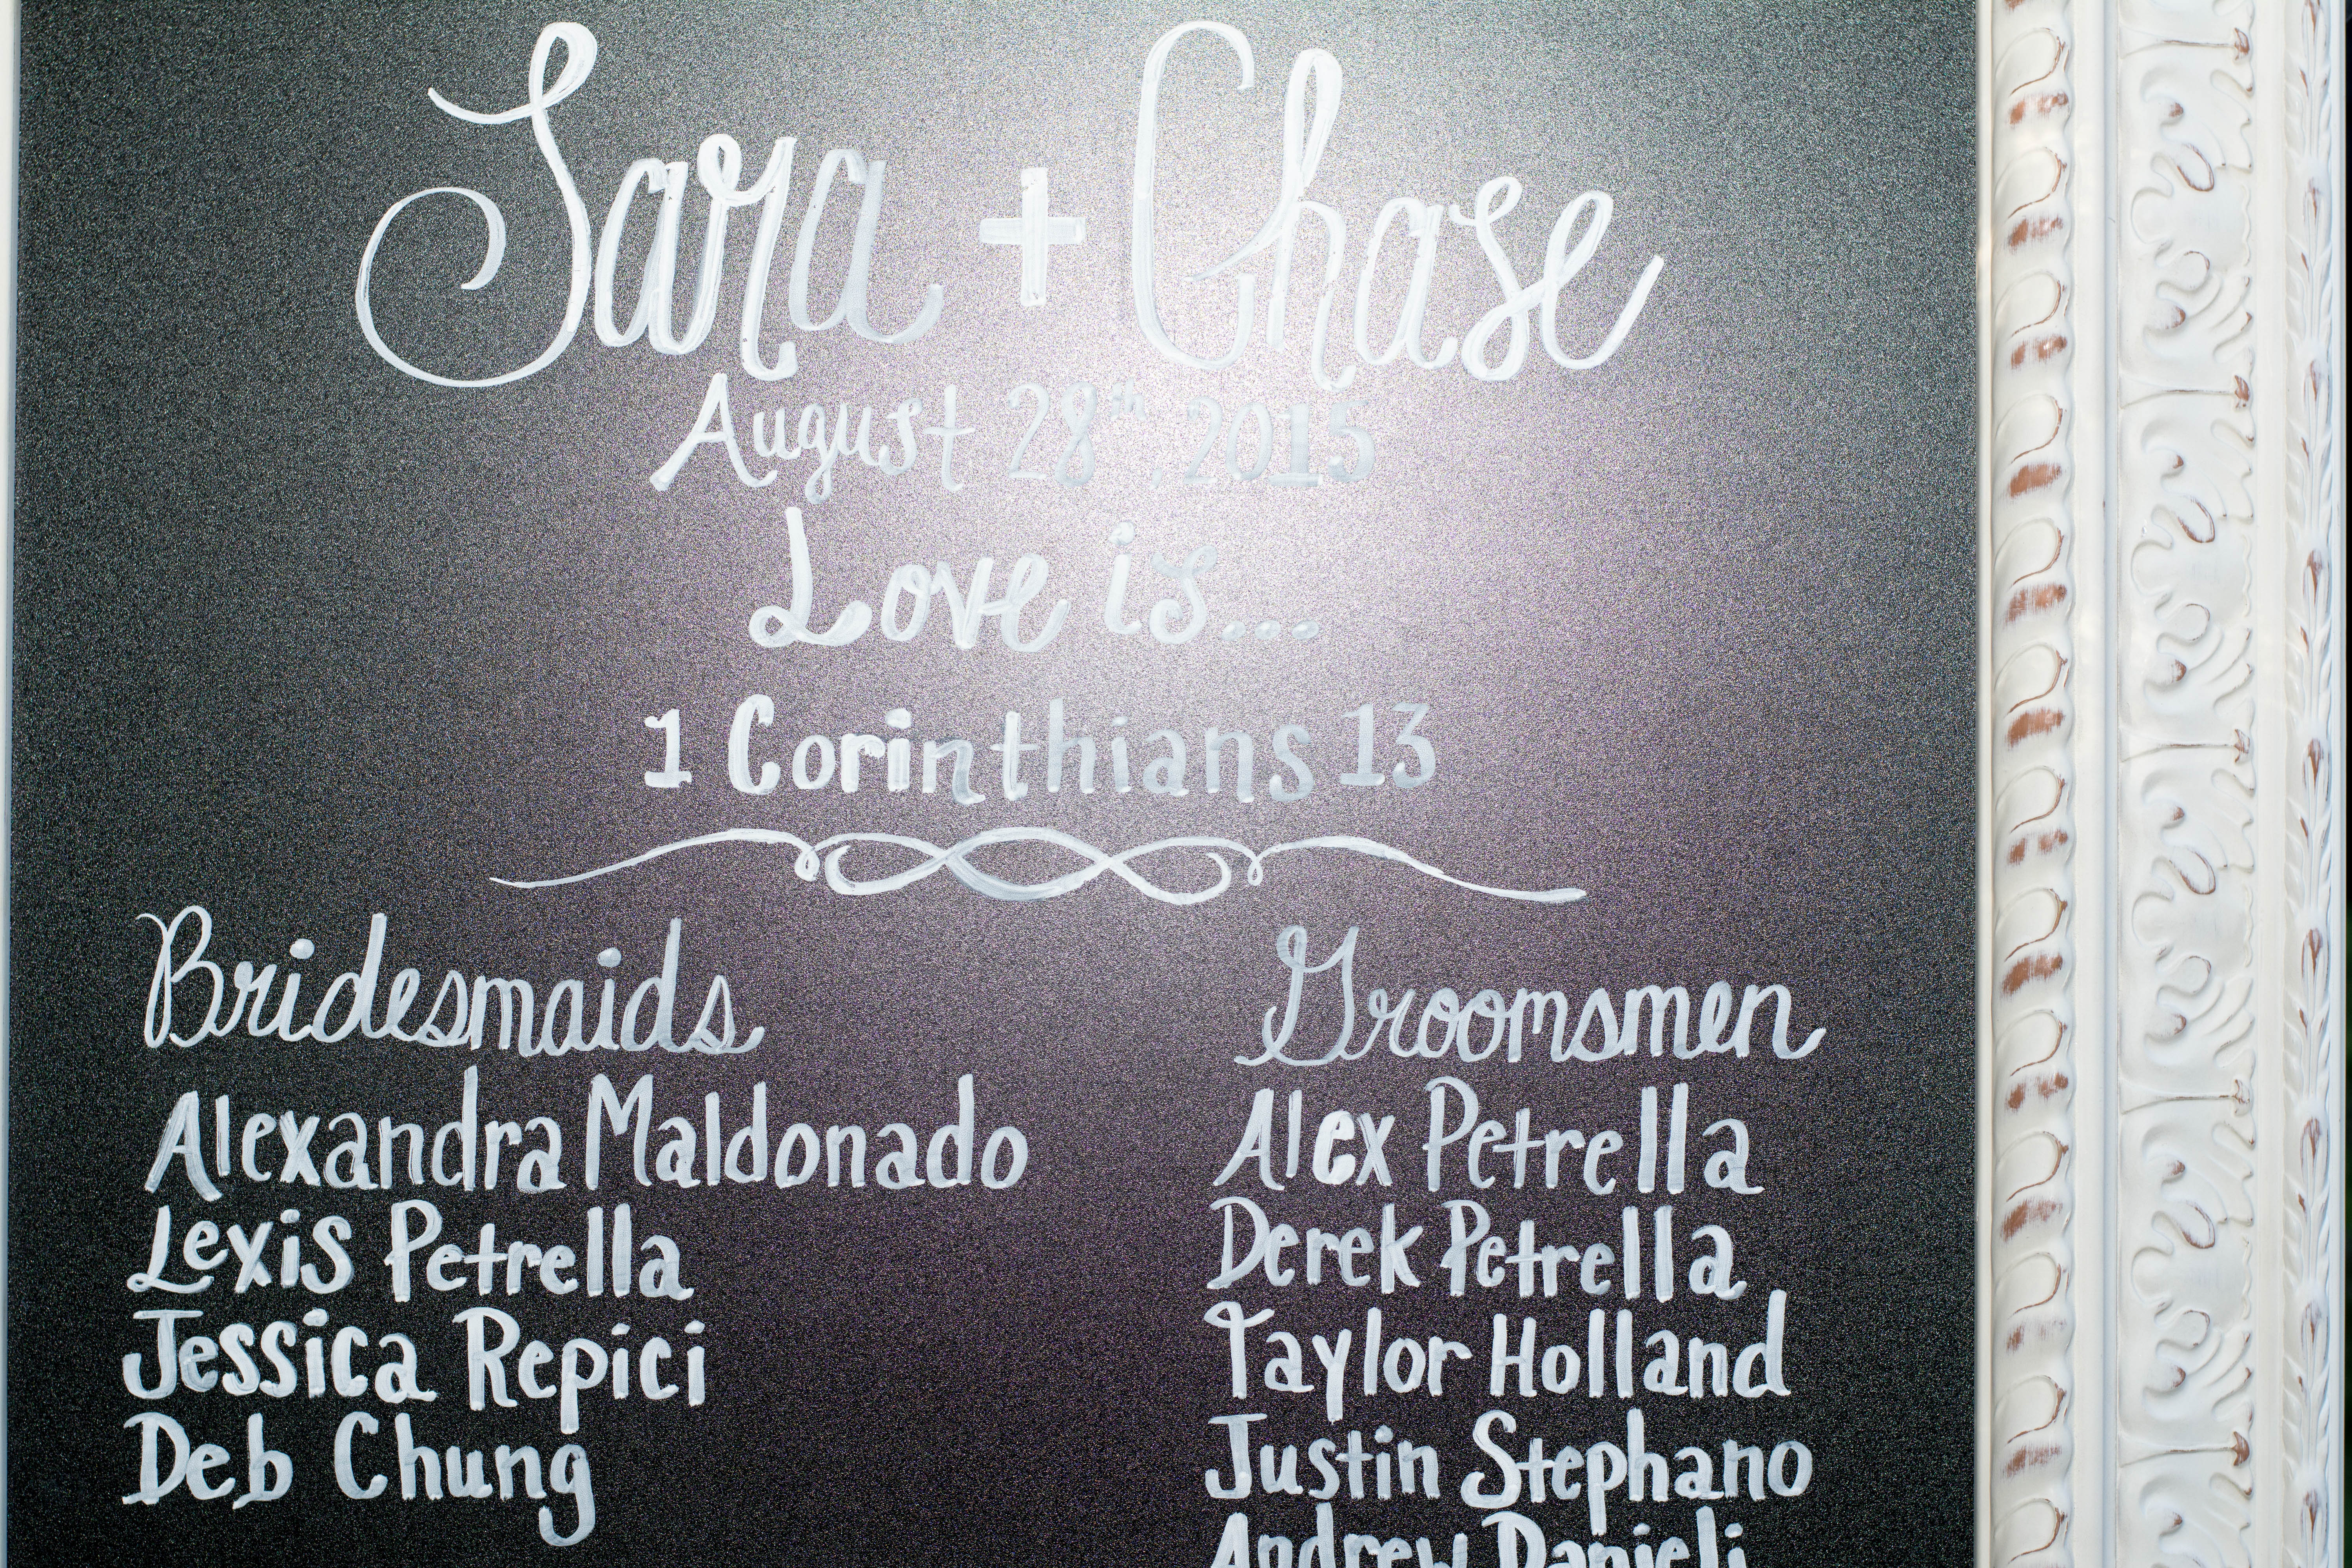 Sara + Chase
August 28th, 2015
Love is...
1 Corinthians 13
Bridesmaids
Alexandra Maldonado
Lexis Petrella
Jessica Repici
Deb Chung
Groomsmen
Alex Petrella
Derek Petrella
Taylor Holland
Justin Stephano
Andrew Danieli